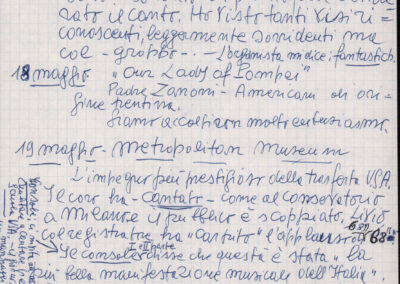 zato il canto. Ho visto tanti visi ri=
conoscenti, leggermente sorridenti ma
col groppo... L'organista mi dice: fantastici.
18 maggio "Our Lady of Pompei"
Padre Zanoni - Americani di ori=
gine trentina.
Siamo accolti con molto entusiasmo.
19 maggio - Metropolitan Museum
L'impegno più prestigioso della trasferta USA.
Il coro ha cantato - come al Conservatorio
a Milano e il pubblico è scoppiato. Livio
col registratore ha "contato" l'applauso: 68"
I e II parte
Il console disse che questa è stata "la
più bella manifestazione musicale dell'Italia".